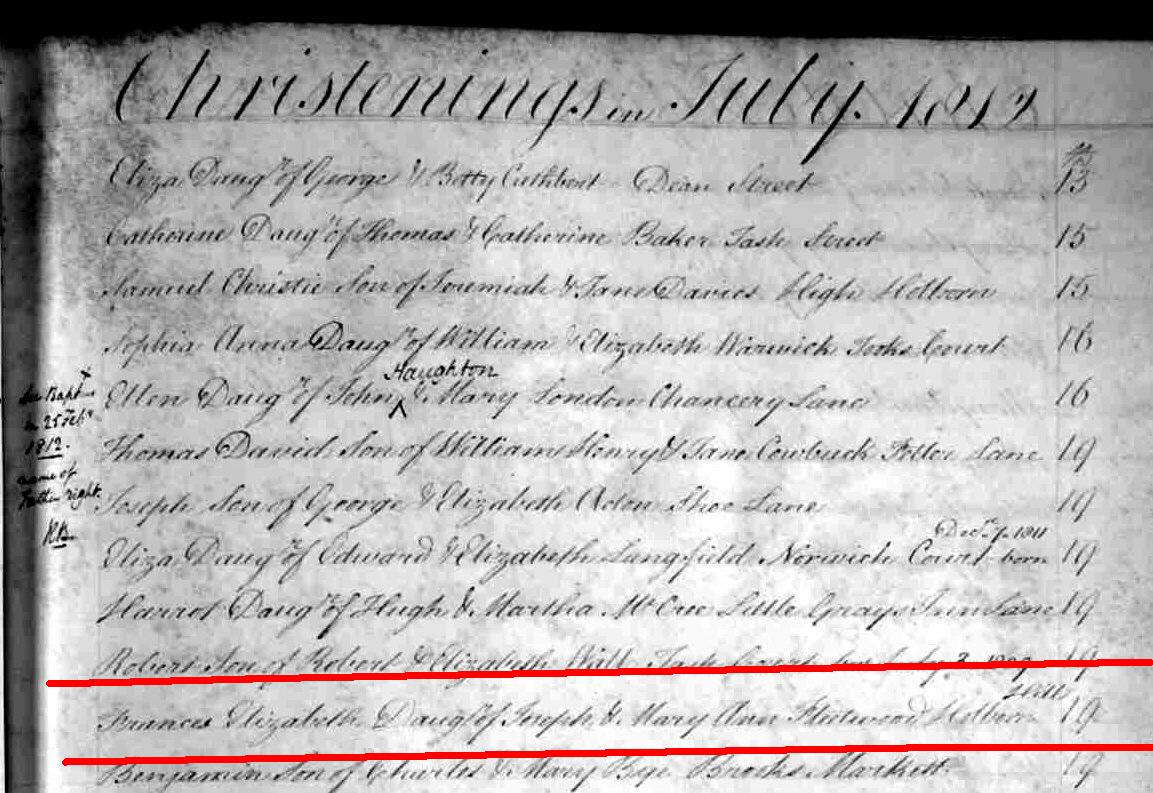 Christenings in July. 1812
Eliza Daugr of George & Betty Cuthbert Dean Street 13
Catherine Daugr of Thomas & Catherine Baker Tash Street 15
Samuel Christie Son of Jeremiah & Jane Davies High Holborn 15
Sophia Anna Daugr of William & Elizabeth Warwick Tooks Court 16
Haughton
Ellen Daugr of John & Mary London Chancery Lane 16
in 25 Feby
1812.
name of
Father right.
Thomas David Son of William Henry & Jane Cowbuck Fetter Lane 19
Joseph Son of George & Elizabeth Acton Shoe Lane 19
Decr 7. 1811
Eliza Daugr of Edward & Elizabeth Langfield Norwich Court born 19
Harriot Daugr of Hugh & Martha Mc Cree Little Grays Inn Lane 19
Robert Son of Robert & Elizabeth Wall Tash Court July 3 1809 19
Frances Elizabeth Daugr of Joseph & Mary Ann Fleetwood Holborn 19
Benjamin Son of Charles & Mary Bye Brooks Markett 19